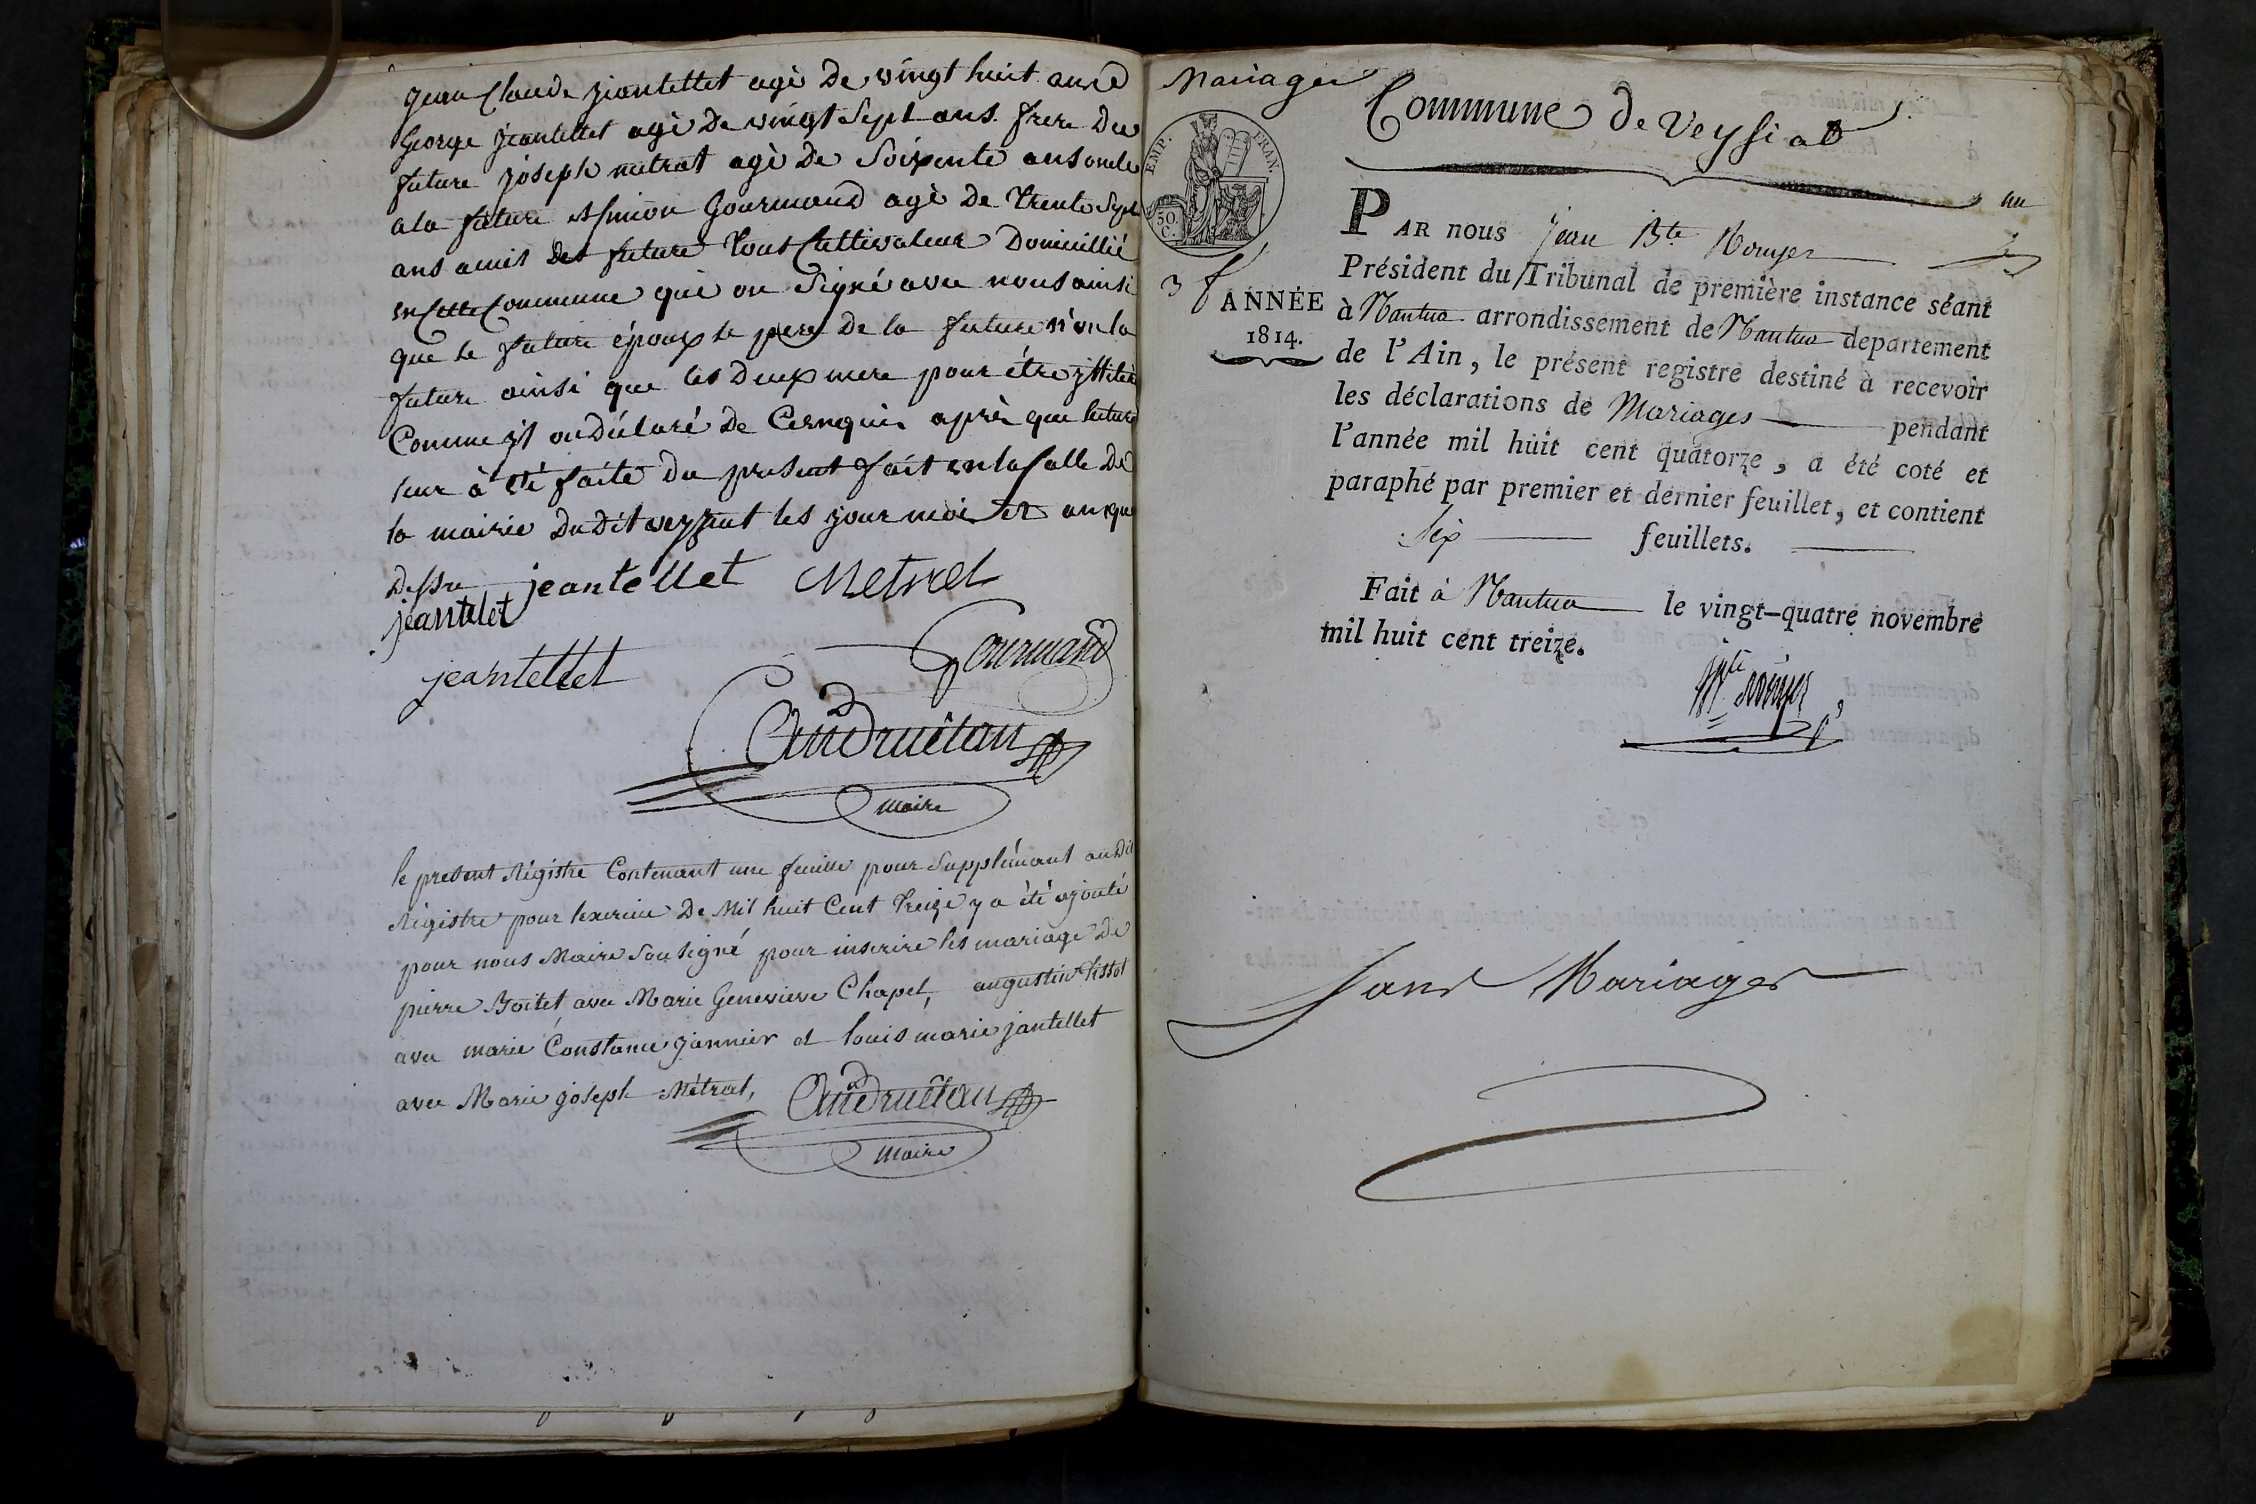 Jean Claude jeantettet agè De vingt huit ans
George jeantettet agè De vingt Sept ans frere Du
future joseph metrat agè De Soixente ans oncle
a la future Gourmand agè De trente Sept
ans amis des future tous Cultivateur Domicillié
en Cette Commune qui on Signé avec nous ainsi
que le future époux le pere De la future non la
future ainsi que les Deux mere pour étre
Comme on Déclaré De Ce requis aprés que lecture
leur à été faite Du present fait en la Salle De
la mairie Du Dit veyziat les jour moi et an que
Dessu jeantellet Metret
jeantelet
jeantettet Gourmand
Andruétan
maire
le present Régistre Contenant une feuille pour Supplément audit
Régistre pour lexercice De Mil huit Cent treize y a été ajouté
pour nous Maire Sousigné pour inscrire les mariage De
pierre avec Marie Genevieve Chapel, augustin tissot
avec marie Constance jannier et louis marie jantellet
avec Marie joseph Métrat, Andruétan
maire
Mariages
Commune de Veysiat
EMP. FRAN.
50.
C.
un
PAR nous jean Bte Rouyer
3 f
Président du Tribunal de première instance séant
ANNÉE
1814.
à Nantua arrondissement de Nantua departement
de l'Ain, le présent registre destiné à recevoir
les déclarations de Mariages pendant
l'année mil huit cent quatorze, a été coté et
paraphé par premier et dernier feuillet, et contient
Six feuillets.
Fait à Nantua le vingt-quatre novembre
mil huit cent treize.
Rouyer
Sans Mariages